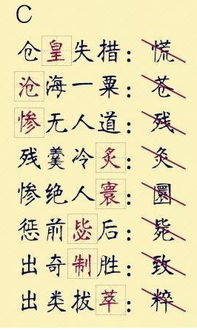 C
仓皇失措：慌
沧海一粟：苍
惨无人道：残
残羹冷炙：灸
惨绝人寰：圜
惩前毖后：毙
出奇制胜：致
出类拔萃：粹